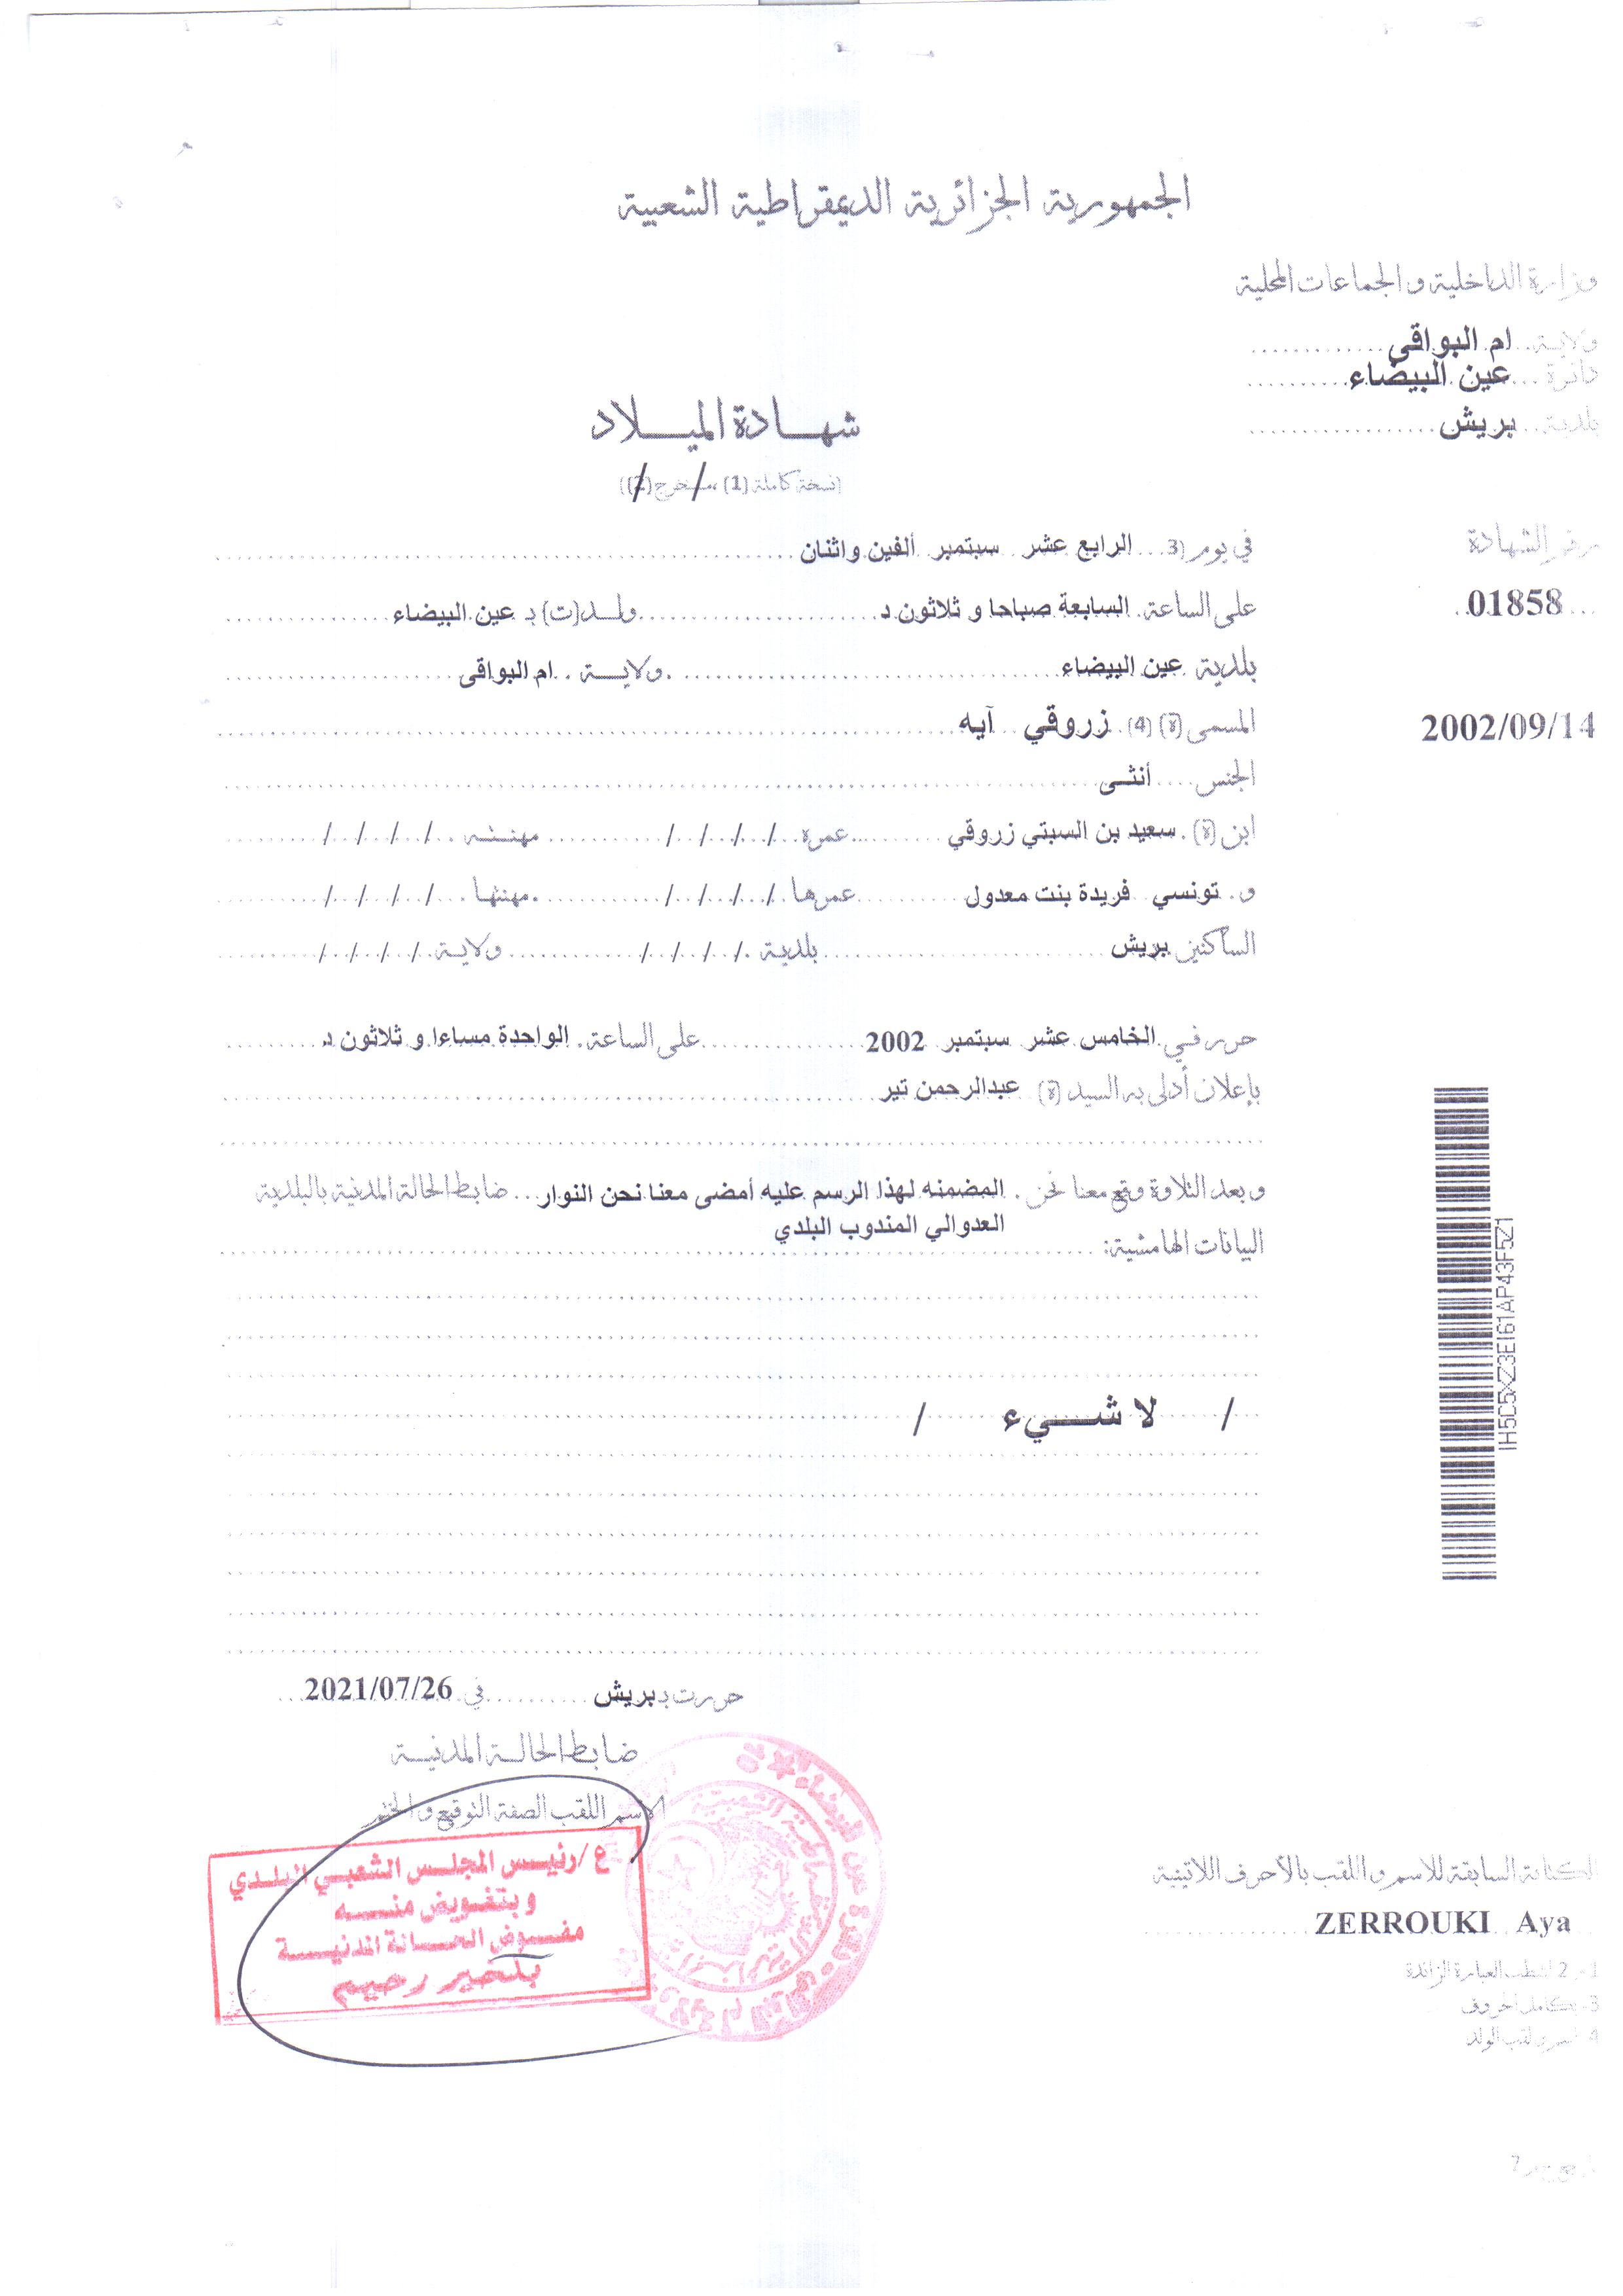 الجمهورية الجزائرية الديمقراطية الشعبية
وزارة الداخلية والجماعات المحلية
ولاية ام البواقي
دائرة عين البيضاء
بلدية بريش
شهادة الميلاد
(نسخة كاملة (1) ،مستخرج (2))
رقم الشهادة
01858
2002/09/14
في يوم (3 الرابع عشر سبتمبر ألفين واثنان
على الساعة. السابعة صباحا و ثلاثون د ولد(ت) بـ عين البيضاء
بلدية عين البيضاء ولاية ام البواقي
المسمى (ة) (4) زروقي آيه
الجنس أنثى
ابن (ة) سعيد بن السبتي زروقي عمره / / / / مهنته / / / /
و. تونسي فريدة بنت معدول عمرها / / / / مهنتها / / / /
الساكنين بريش بلدية / / / / ولاية / / / /
حرر في الخامس عشر سبتمبر 2002 على الساعة. الواحدة مساءا و ثلاثون د
بإعلان أدلى به السيد (ة) عبدالرحمن تير
و بعد التلاوة وقع معنا نحن . المضمنه لهذا الرسم عليه أمضى معنا نحن النوار ضابط الحالة المدنية بالبلدية
العدوالي المندوب البلدي
البيانات الهامشية:
/ لا شيء /
IH5C5XZ3EI61AP43F5Z1
حررت بـ بريش في 2021/07/26
ضابط الحالة المدنية
الاسم اللقب الصفة التوقيع و الختم
ع /رئيس المجلس الشعبي البلدي
و بتفويض منه
مفوض الحالة المدنية
بلخير رحيم
الكتابة السابقة للاسم و اللقب بالأحرف اللاتينية
ZERROUKI Aya
1- 2 اشطب العبارة الزائدة
3- بكامل الحروف
4- اسم و لقب الولد